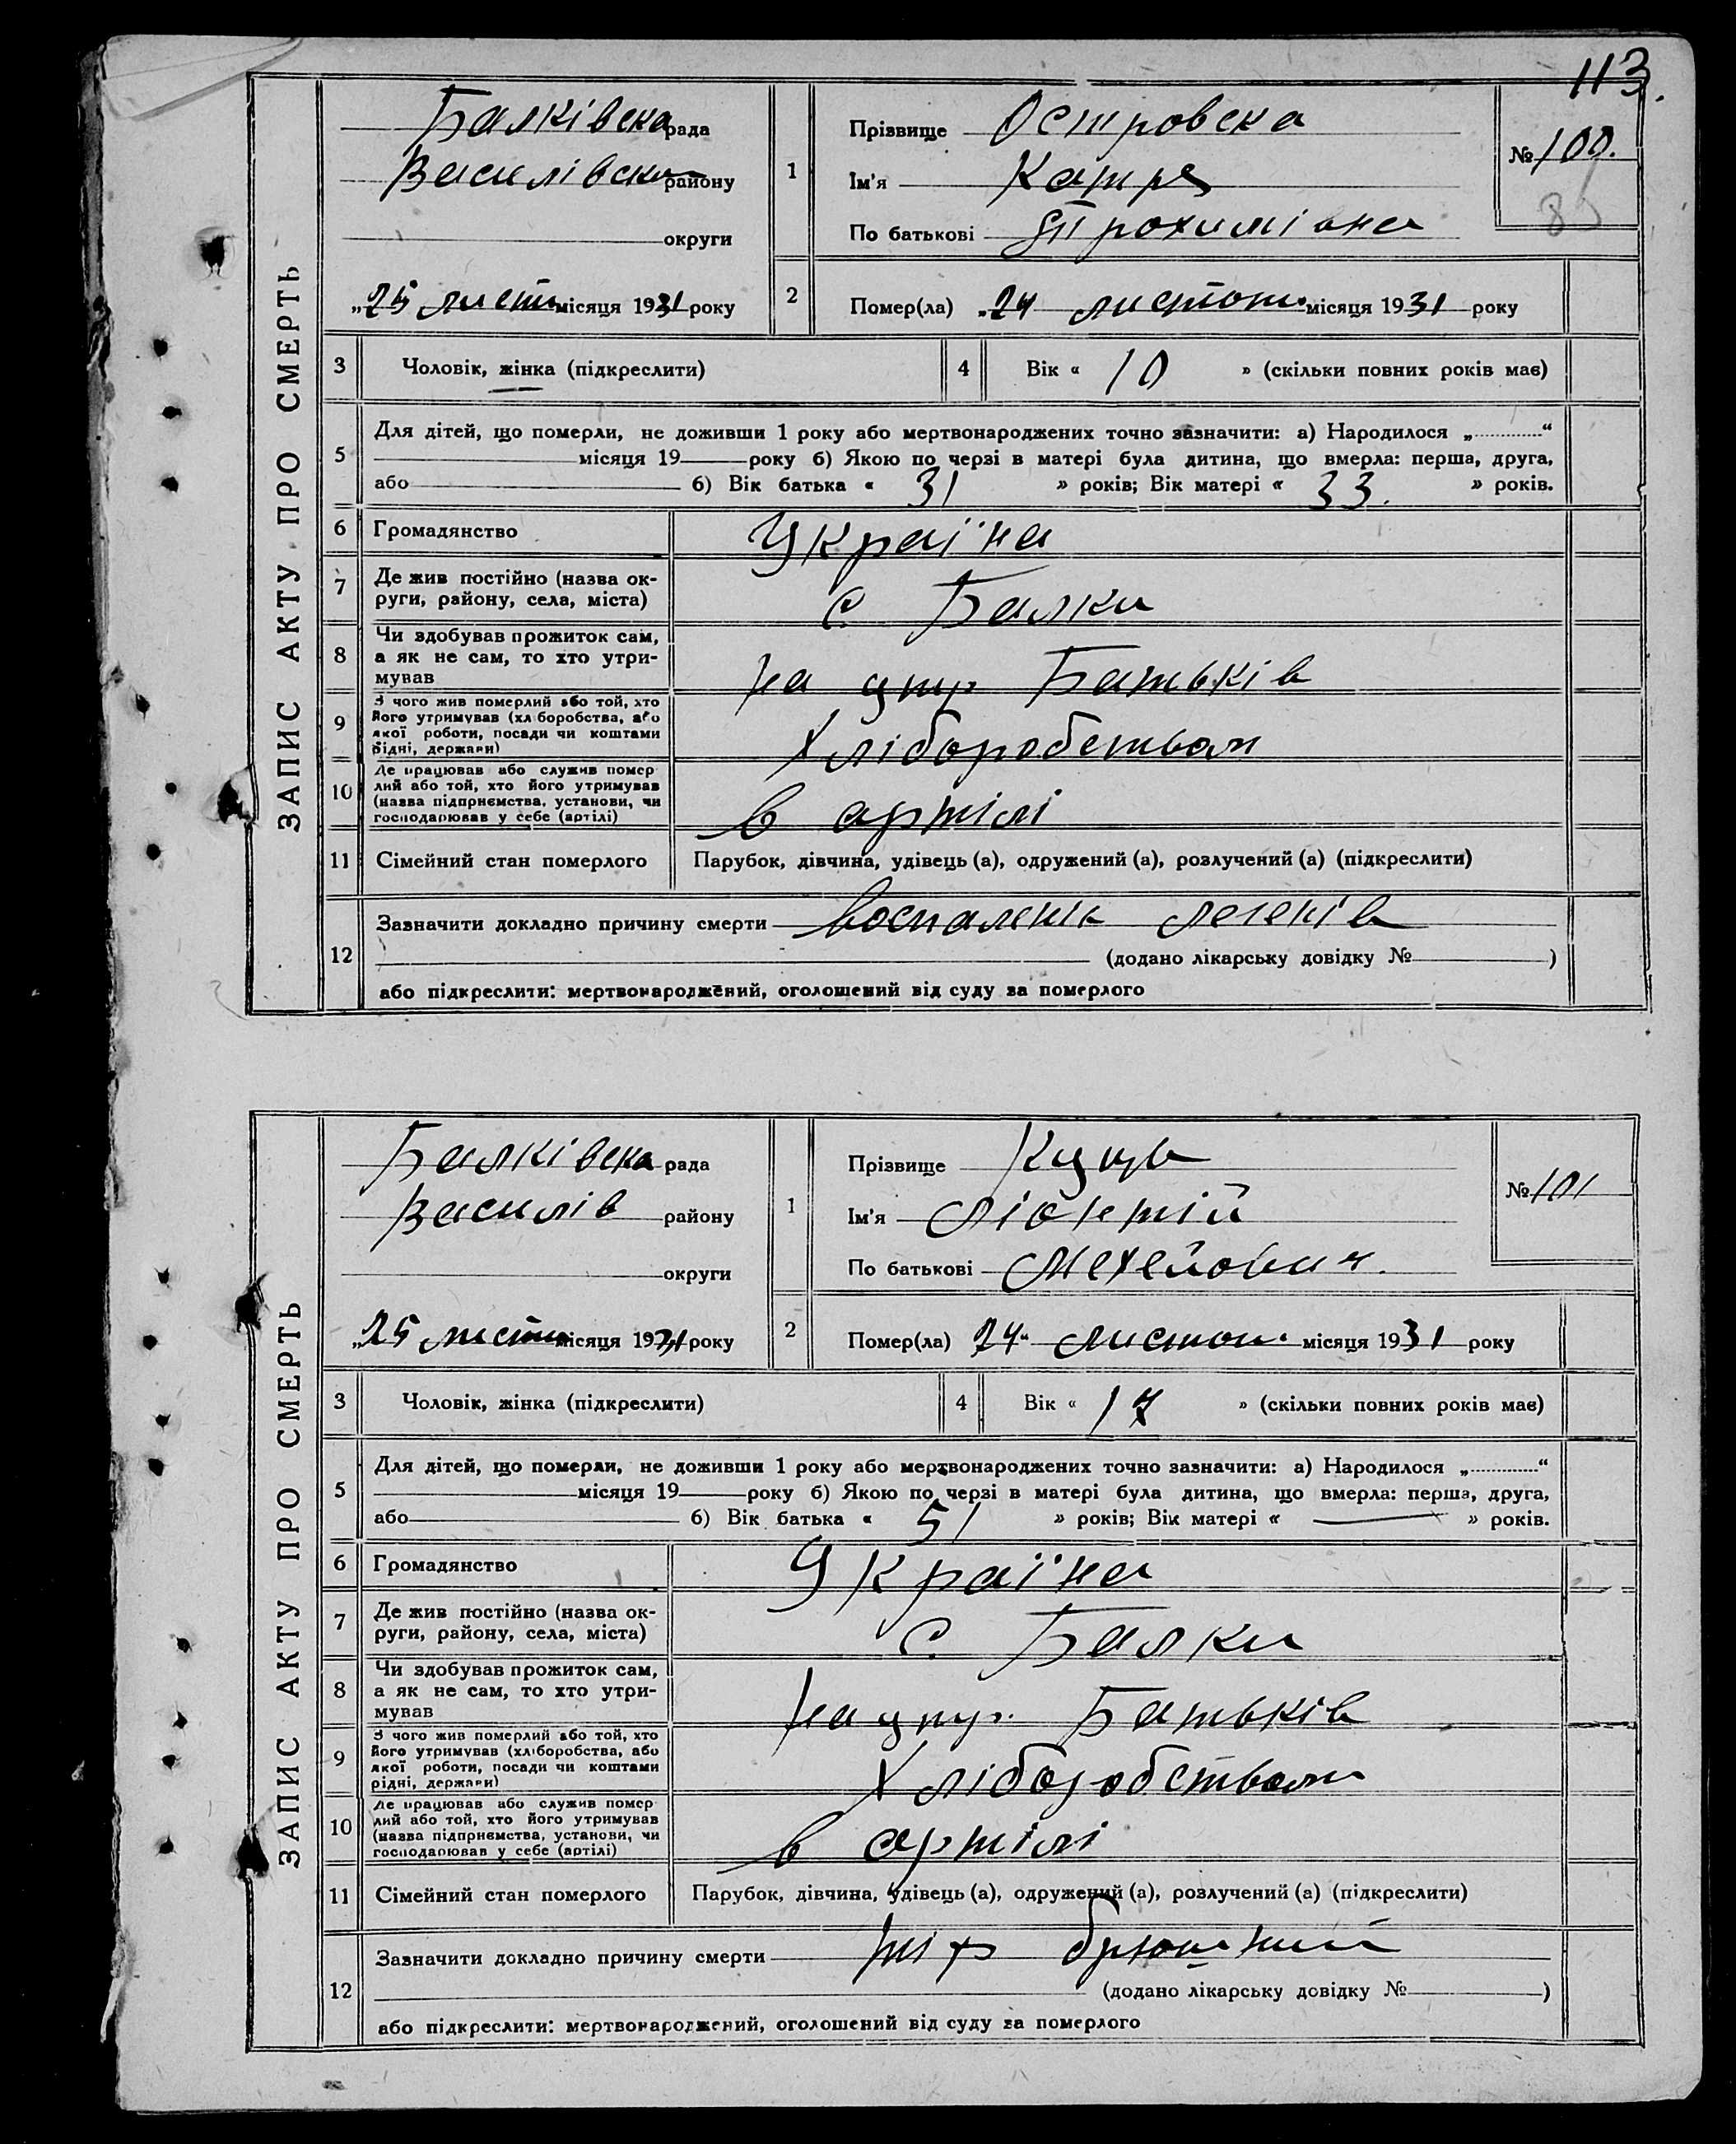 113.
ЗАПИС АКТУ ПРО СМЕРТЬ
Балківска рада
Василівськи району
округи
„25 листп місяця 1931 року
1
Прізвище Островска
Ім'я Катря
По батькові Трохимівна
№ 100.
85
2
Помер(ла) „24 листопа. місяця 1931 року
3 Чоловік, жінка (підкреслити)
4 Вік « 10 » (скільки повних років має)
5
Для дітей, що померли, не доживши 1 року або мертвонароджених точно зазначити: а) Народилося „............“
місяця 19 року б) Якою по черзі в матері була дитина, що вмерла: перша, друга,
або б) Вік батька « 31 » років; Вік матері « 33. » років.
6 Громадянство Україна
7 Де жив постійно (назва ок-
руги, району, села, міста) с Балки
8 Чи здобував прожиток сам,
а як не сам, то хто утри-
мував на утр Батьків
9 З чого жив померлий або той, хто
його утримував (хліборобства, або
якої роботи, посади чи коштами
рідні, держави) Хліборобством
10 Де працював або служив помер
лий або той, хто його утримував
(назва підприємства, установи, чи
господарював у себе (артілі) в артілі
11 Сімейний стан померлого Парубок, дівчина, удівець (а), одружений (а), розлучений (а) (підкреслити)
12
Зазначити докладно причину смерти воспаленік легенів
(додано лікарську довідку № )
або підкреслити: мертвонароджений, оголошений від суду за померлого
ЗАПИС АКТУ ПРО СМЕРТЬ
Балківска рада
Василів району
округи
„25 листп місяця 1931 року
1
Прізвище
Ім'я Ліонтій
По батькові Мехейович.
№ 101
2
Помер(ла) 24“ листоп. місяця 1931 року
3 Чоловік, жінка (підкреслити)
4 Вік « 17 » (скільки повних років має)
5
Для дітей, що померли, не доживши 1 року або мертвонароджених точно зазначити: а) Народилося „............“
місяця 19 року б) Якою по черзі в матері була дитина, що вмерла: перша, друга,
або б) Вік батька « 51 » років; Вік матері « — » років.
6 Громадянство Україна
7 Де жив постійно (назва ок-
руги, району, села, міста) с. Балки
8 Чи здобував прожиток сам,
а як не сам, то хто утри-
мував на утр. Батьків
9 З чого жив померлий або той, хто
його утримував (хліборобства, або
якої роботи, посади чи коштами
рідні, держави) Хліборобством
10 Де працював або служив помер
лий або той, хто його утримував
(назва підприємства, установи, чи
господарював у себе (артілі) в артілі
11 Сімейний стан померлого Парубок, дівчина, удівець (а), одружений (а), розлучений (а) (підкреслити)
12
Зазначити докладно причину смерти тіф брюшний
(додано лікарську довідку № )
або підкреслити: мертвонароджений, оголошений від суду за померлого